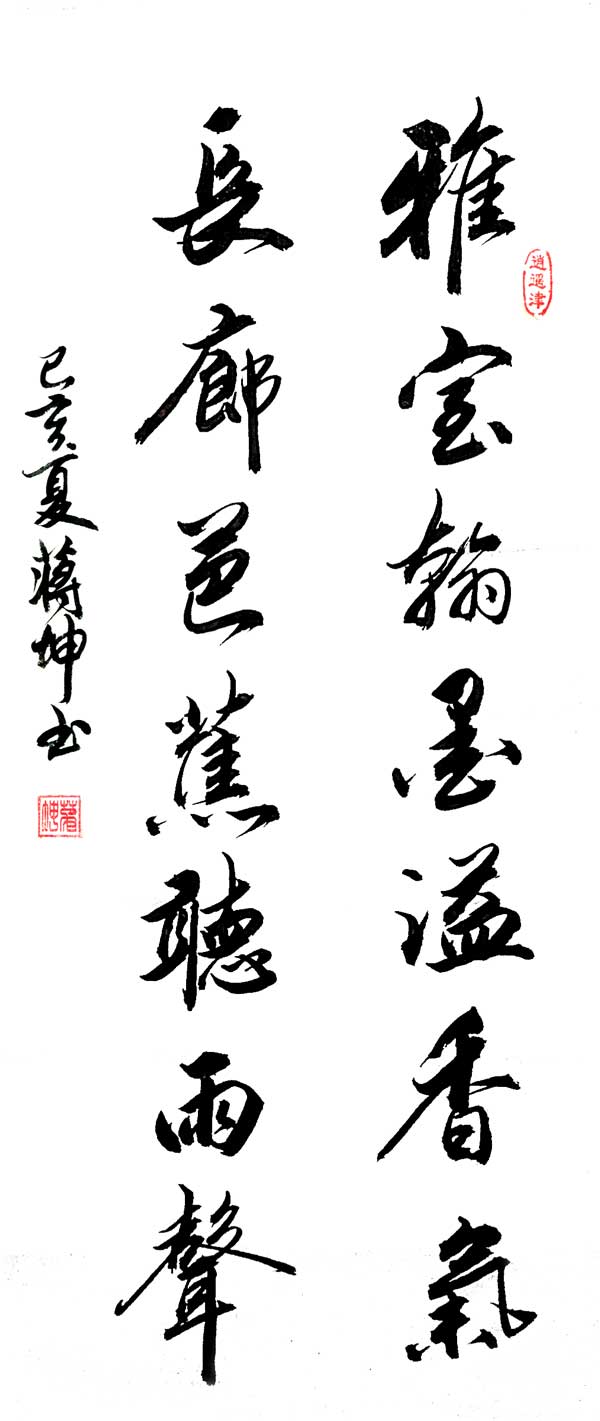 雅室翰墨溢香氣
長廊芭蕉聽雨聲
己亥夏蔣坤书
逍遥津
蔣坤